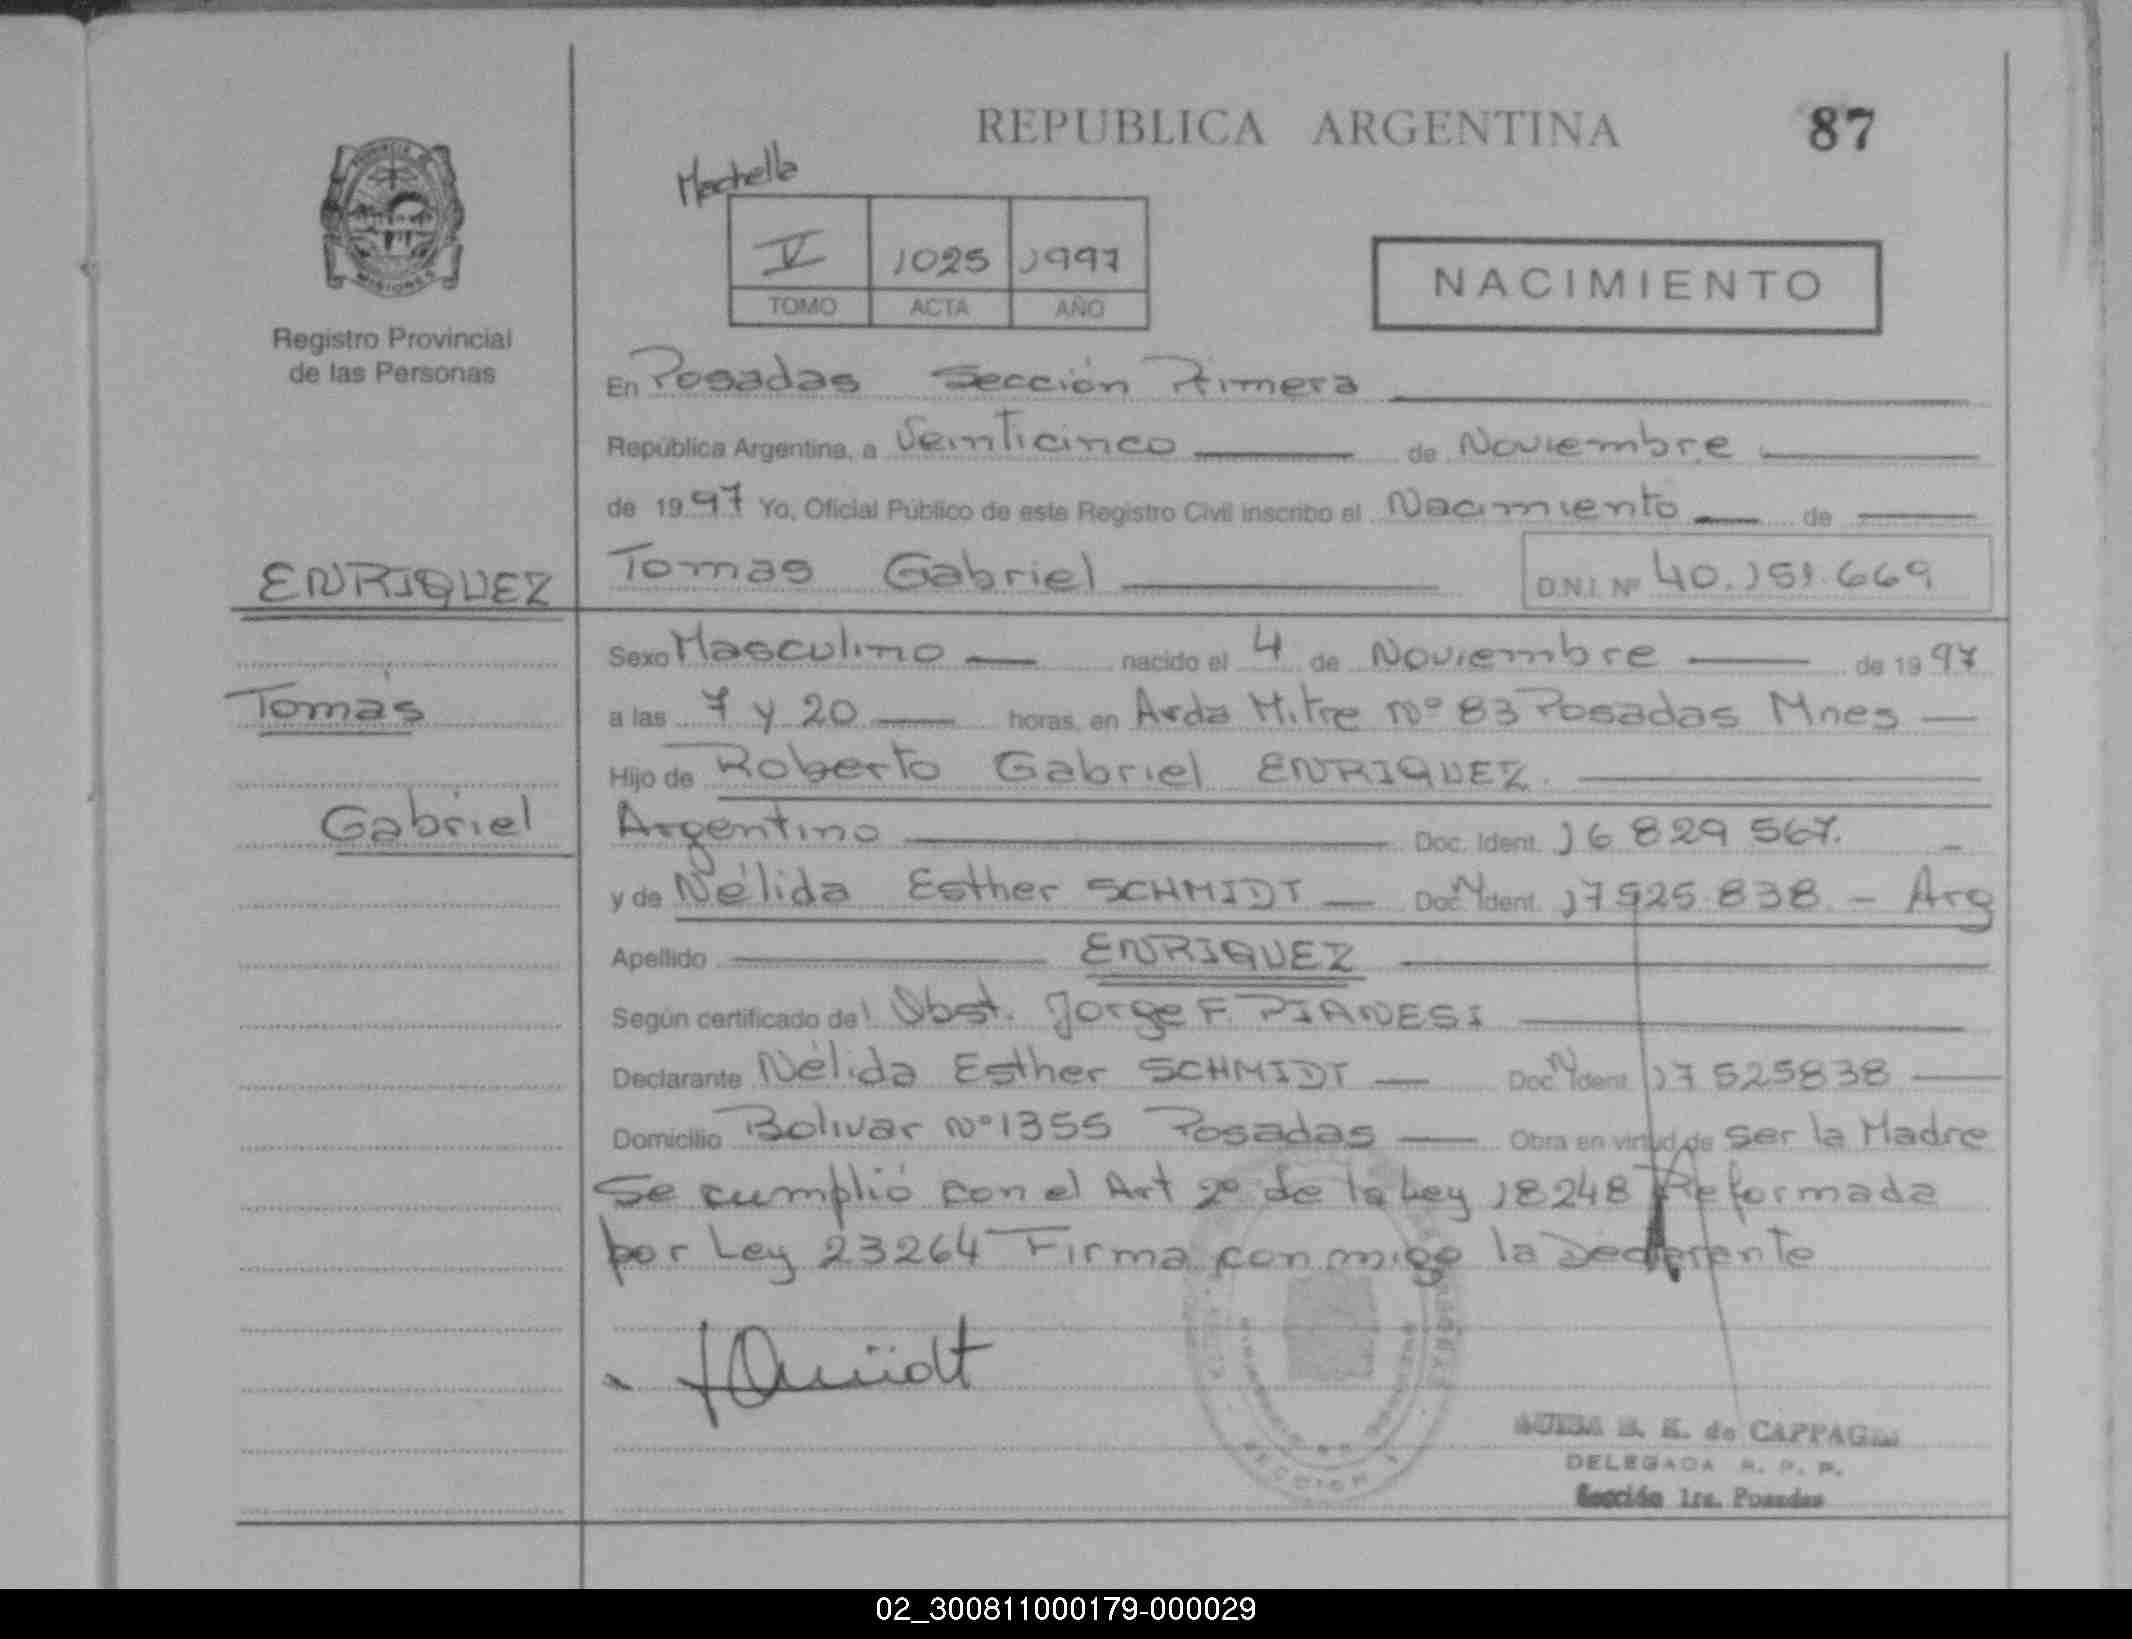 REPUBLICA ARGENTINA 87
V 1025 1997
TOMO ACTA AÑO
NACIMIENTO
MISIONES
Registro Provincial
de las Personas
En Posadas Sección Primera
República Argentina, a Veinticinco de Noviembre
de 1997 Yo, Oficial Público de este Registro Civil inscribo el Nacimiento de
ENRIQUEZ
Tomas Gabriel D.N.I. Nº 40.151.669
Sexo Masculino nacido el 4 de Noviembre de 1997
Tomás
a las 7 y 20 horas, en Avda Mitre Nº 83 Posadas Mnes
Hijo de Roberto Gabriel ENRIQUEZ
Gabriel
Argentino Doc. Ident. 16 829 567.
y de Nélida Esther SCHMIDT Doc. Ident. 17525.838 - Arg
Apellido ENRIQUEZ
Según certificado del Obst. Jorge F. PIANESI
Declarante Nélida Esther SCHMIDT Doc. Ident. 17 525838
Domicilio Bolivar Nº 1355 Posadas Obra en virtud de ser la Madre
Se cumplió con el Art 2º de la Ley 18248 Reformada
por Ley 23264 Firma conmigo la Declarante
B. K. de CAPPAG
DELEGADA R. P. P.
Sección 1ra. Posadas
02_300811000179-000029